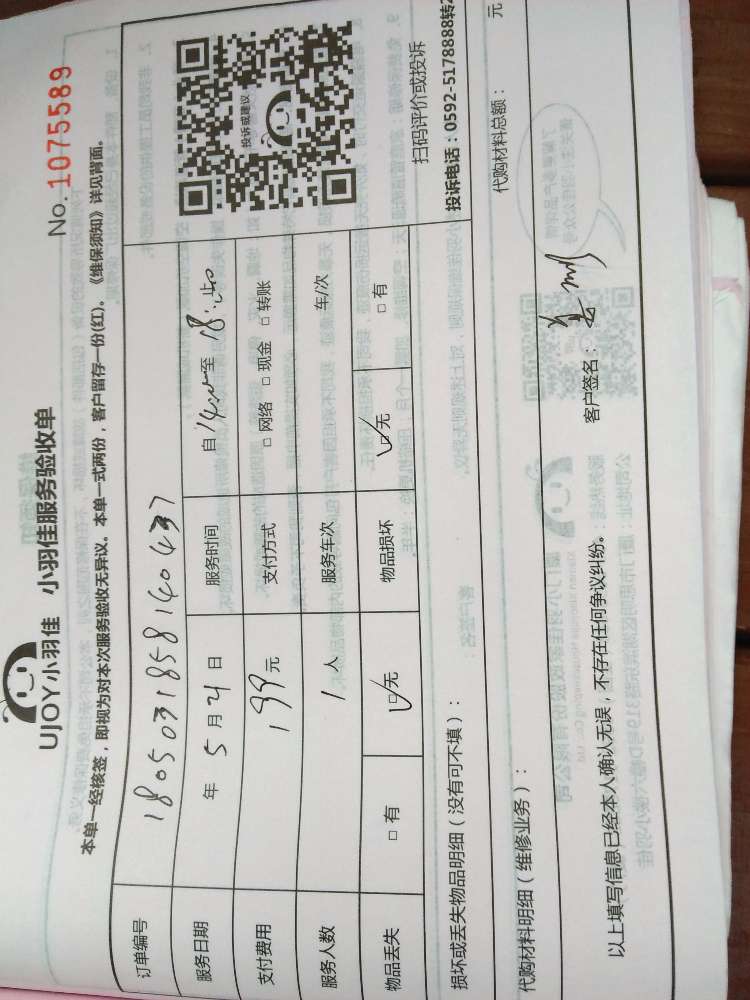 UJOY小羽佳 小羽佳服务验收单
No. 1075589
本单一经核签，即视为对本次服务验收无异议。本单一式两份，客户留存一份(红)。《维保须知》详见背面。
订单编号 180503185814043​7
服务日期 年 5 月 21 日 服务时间 自 14:00 至 18:00
支付费用 199 元 支付方式 □ 网络 □ 现金 □ 转账
服务人数 1 人 服务车次 车/次
物品丢失 □ 有 ☑ 无 物品损坏 ☑ 无 □ 有
投诉或建议
扫码评价或投诉
投诉电话：0592-5178888转2
损坏或丢失物品明细（没有可不填）：
代购材料明细（维修业务）： 代购材料总额： 元
以上填写信息已经本人确认无误，不存在任何争议纠纷。 客户签名：